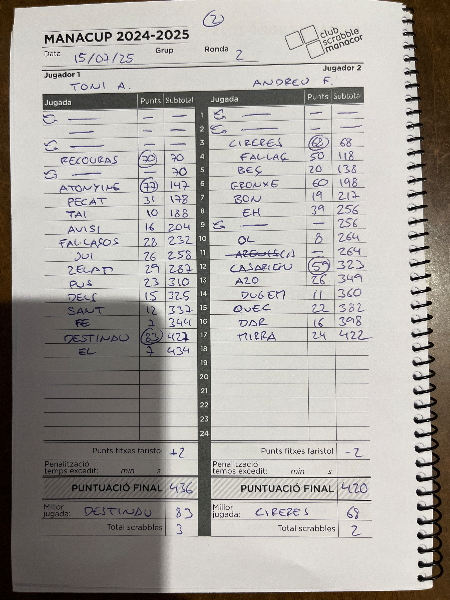 2
MANACUP 2024-2025
club scrabble manacor
Data 15/07/25 Grup Ronda 2
Jugador 1 Jugador 2
TONI A. ANDREU F.
Jugada Punts Subtotal Jugada Punts Subtotal
— — — 1 — — —
— — — 2 — — —
— — — 3 CIRERES 68 68
RECOURAS 70 70 4 FALLAC 50 118
— 70 5 BEC 20 138
ATONYINS 77 147 6 GRONXE 60 198
PECAT 31 178 7 BON 19 217
TAI 10 188 8 EH 39 256
AVISI 16 204 9 — 256
FALLASOS 28 232 10 OL 8 264
JUI 26 258 11 — 264
ZELAD 29 287 12 59 323
PUS 23 310 13 AZO 26 349
DELS 15 325 14 DUGEM 11 360
SANT 12 337 15 QUEC 22 382
FE 7 344 16 DAR 16 398
DESTINAU 83 427 17 MIRRA 24 422
EL 7 434 18
19
20
21
22
23
24
Punts fitxes faristol +2 Punts fitxes faristol -2
Penalització temps excedit: min s Penalització temps excedit: min s
PUNTUACIÓ FINAL 436 PUNTUACIÓ FINAL 420
Millor jugada: DESTINAU 83 Millor jugada: CIRERES 68
Total scrabbles 3 Total scrabbles 2